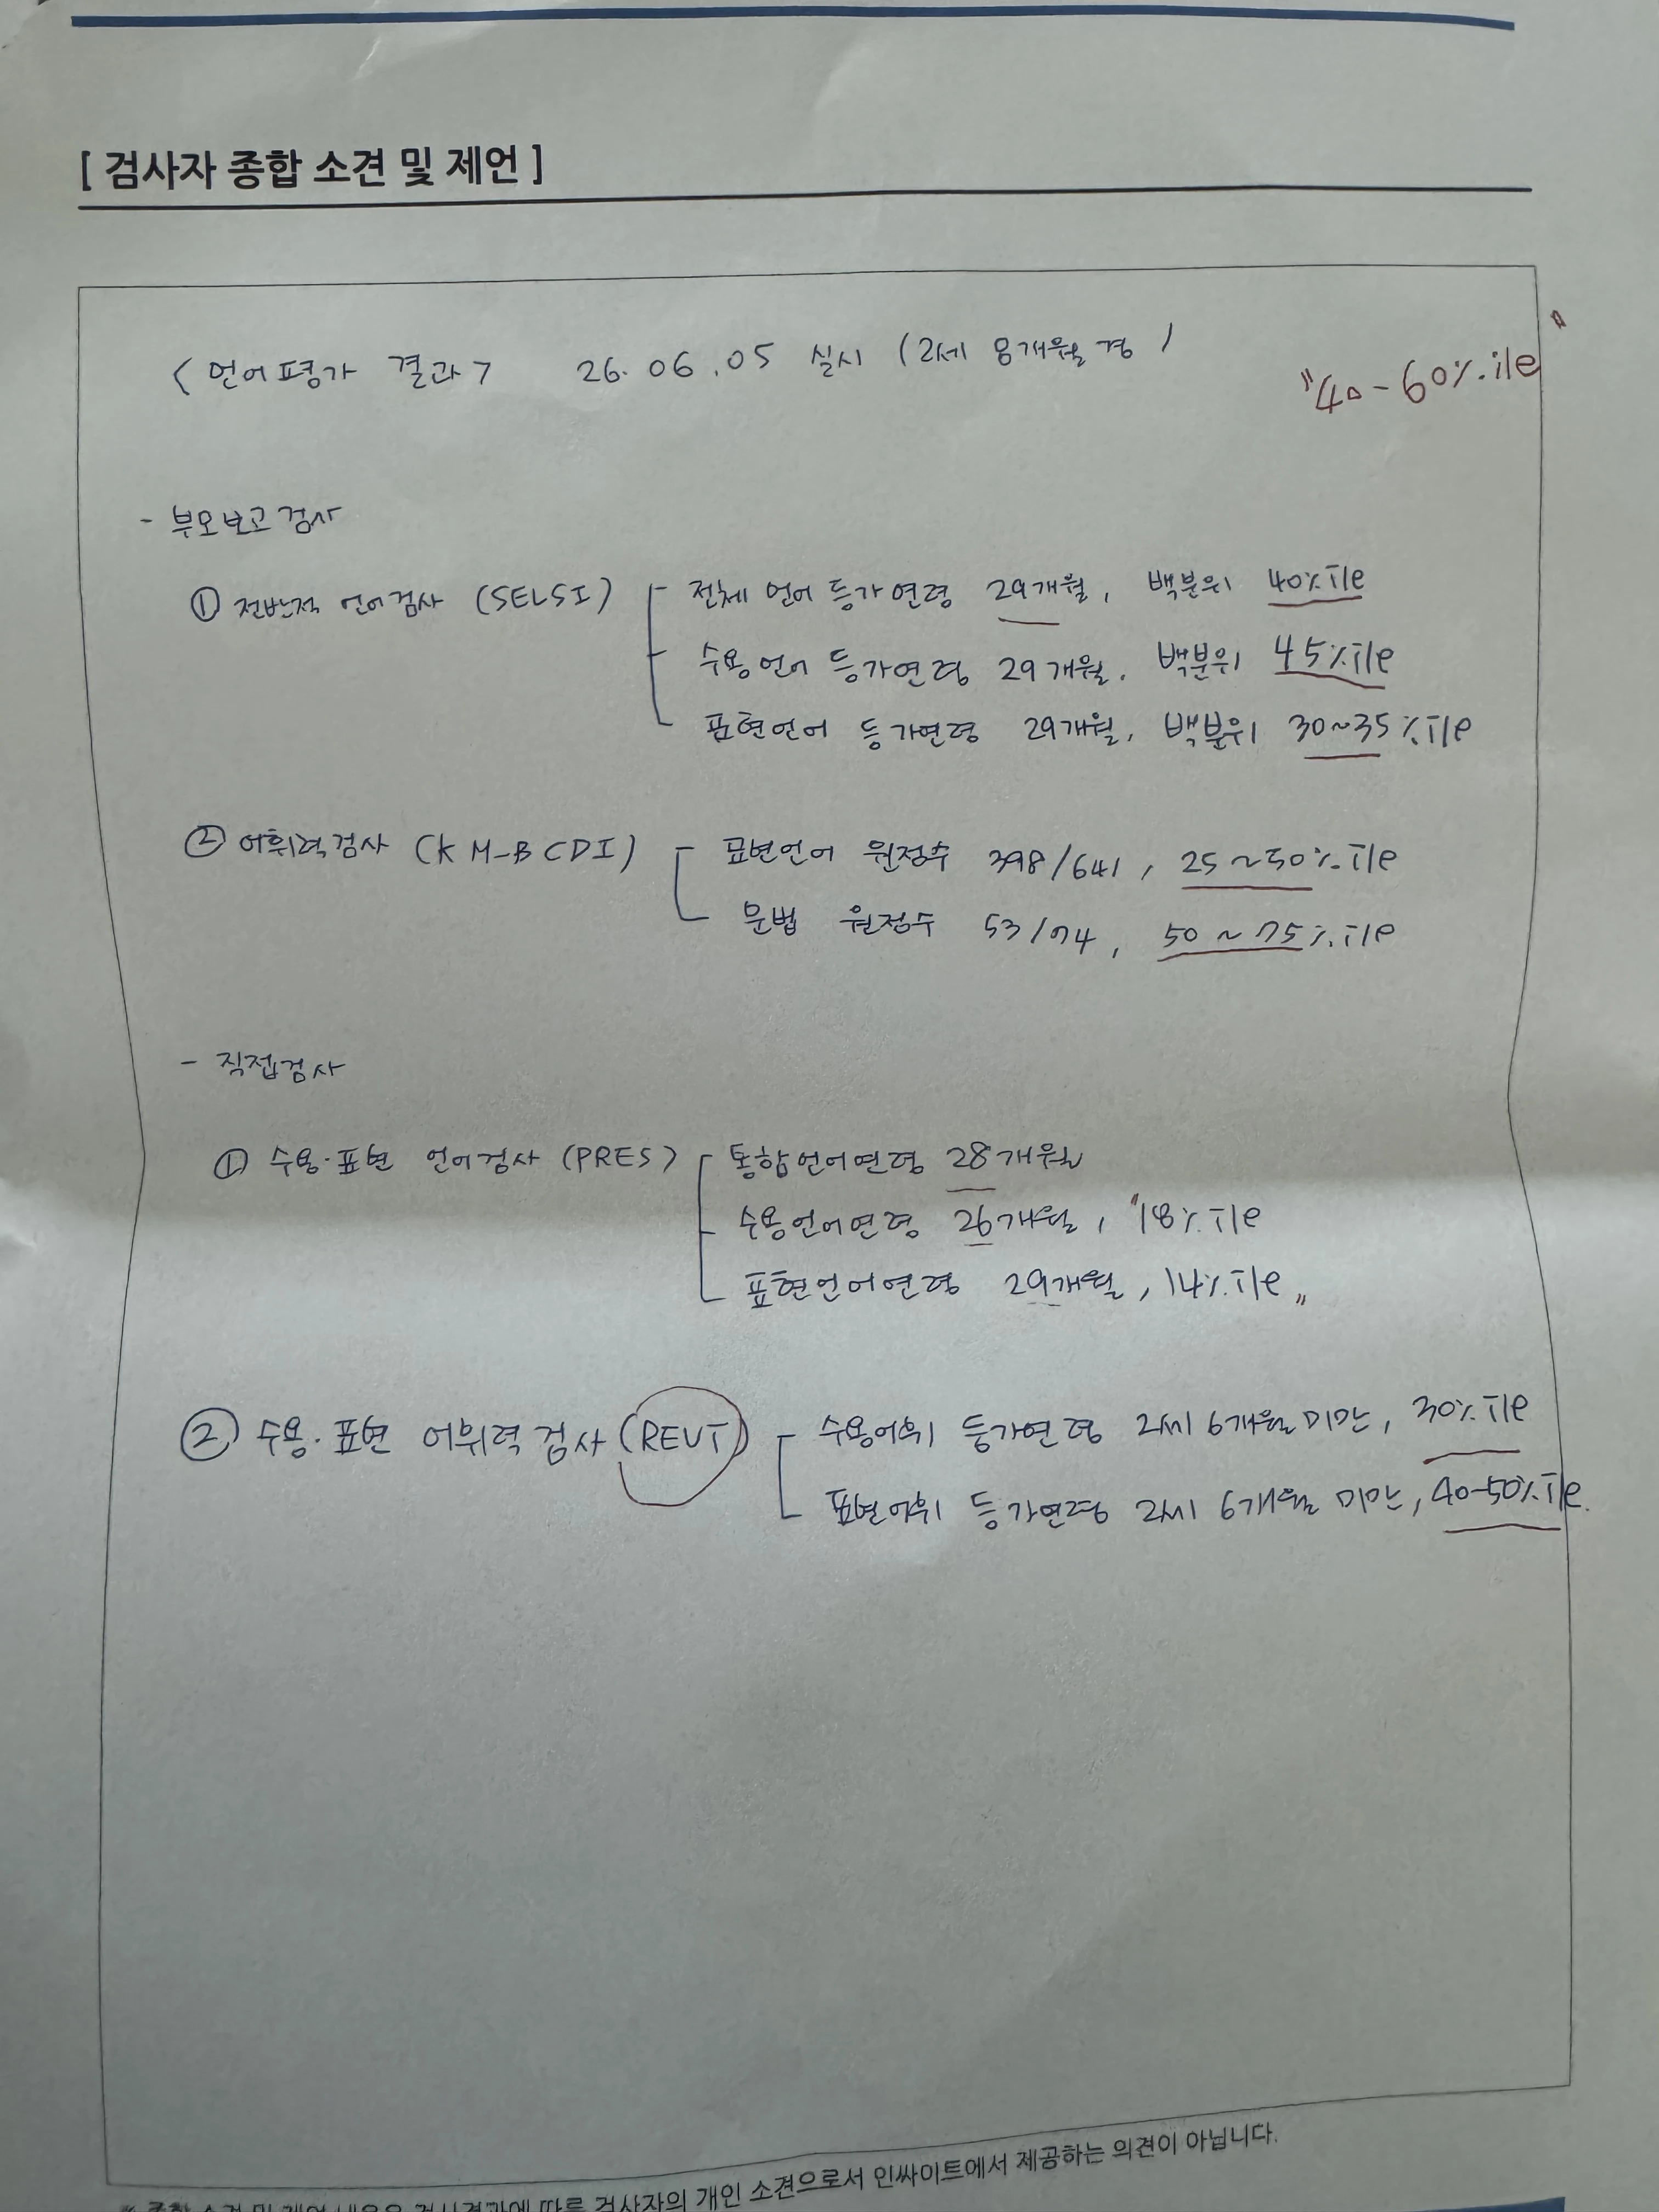 [ 검사자 종합 소견 및 제언 ]
< 언어평가 결과 > 26. 06. 05 실시 (2세 8개월경)
"40-60%ile"
- 부모보고검사
① 전반적 언어검사 (SELSI) 전체 언어 등가연령 29개월, 백분위 40%ile
수용언어 등가연령 29개월. 백분위 45%ile
표현언어 등가연령 29개월, 백분위 30~35%ile
② 어휘력검사 (K M-B CDI) 표현언어 원점수 398/641, 25~50%ile
문법 원점수 53/74, 50~75%ile
- 직접검사
① 수용·표현 언어검사 (PRES) 통합언어연령 28개월
수용언어연령 26개월, "18%ile
표현언어연령 29개월, 14%ile"
② 수용·표현 어휘력검사 (REVT) 수용어휘 등가연령 2세 6개월 미만, 30%ile
표현어휘 등가연령 2세 6개월 미만, 40-50%ile.
※ 종합 소견 및 제언 내용은 검사결과에 따른 검사자의 개인 소견으로서 인싸이트에서 제공하는 의견이 아닙니다.